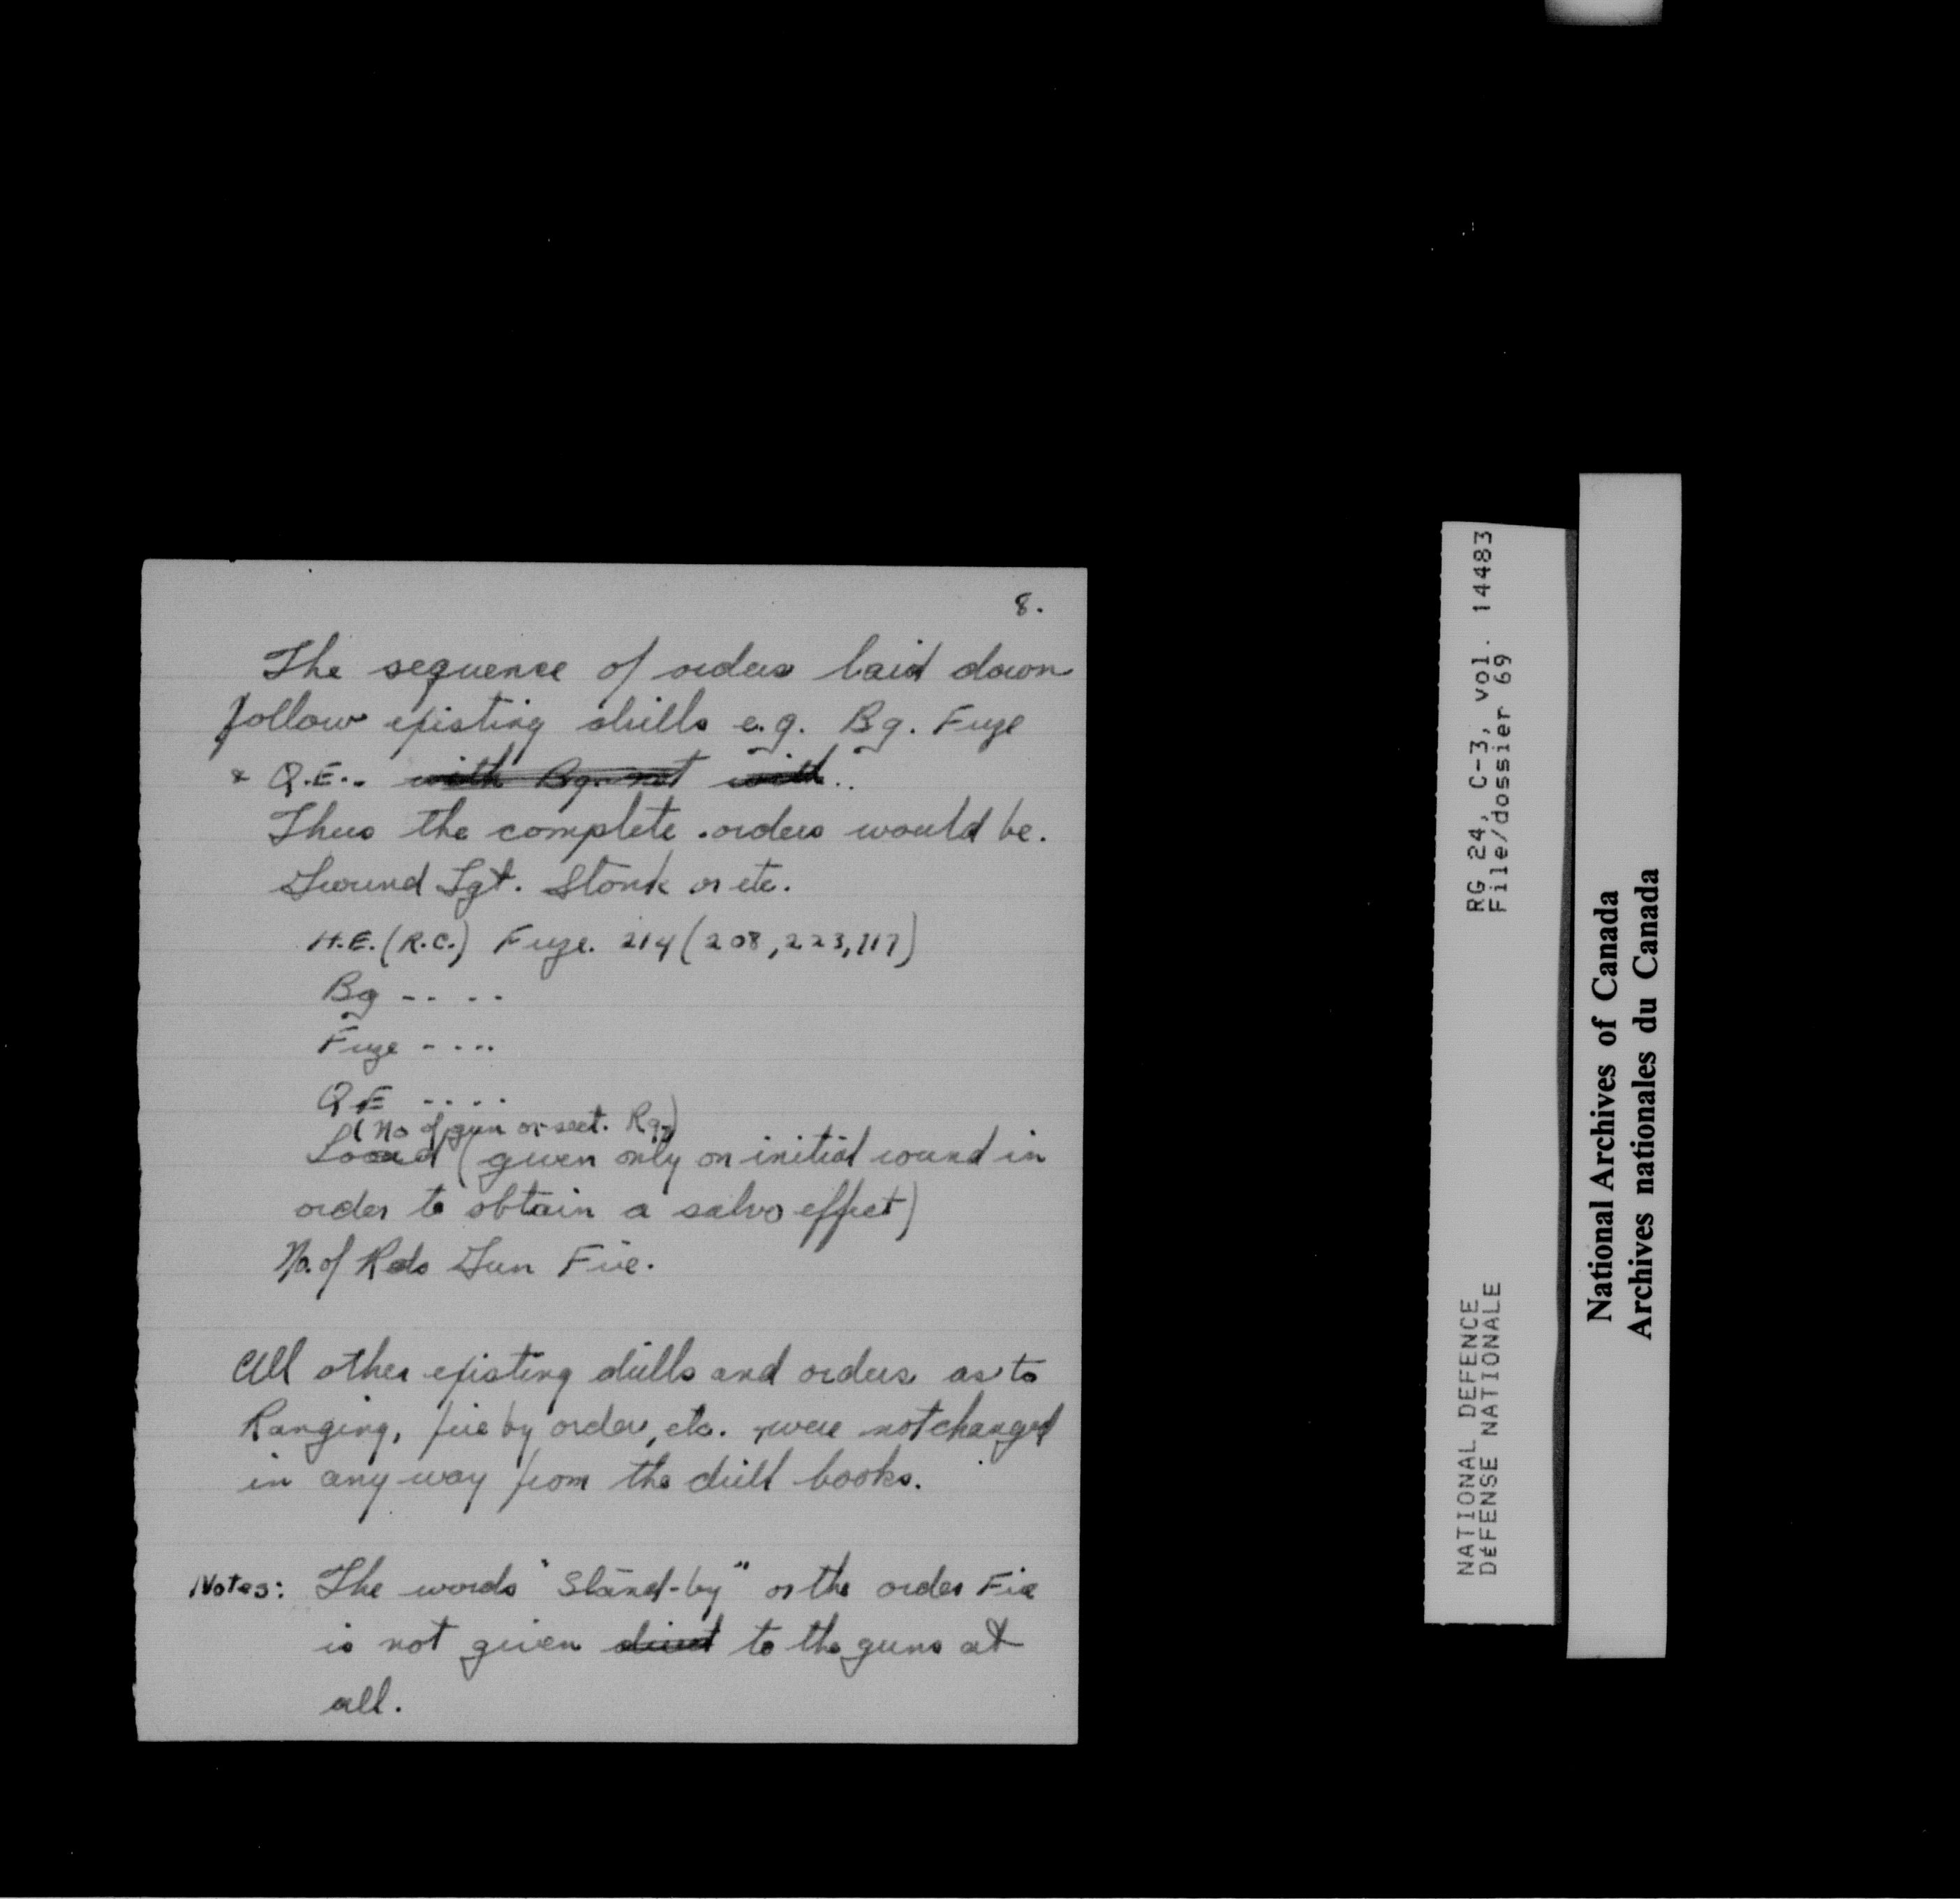 8.
The sequence of orders laid down
follow existing drills e.g. Bg. Fuze
& Q.E.. with Bg. not with..
Thus the complete orders would be.
Ground Tgt. Stonk or etc.
H.E. (R.C.) Fuze. 214 (208, 223, 117)
Bg -- --
Fuze - ---
QE ----
(No of gun or sect. Rg)
Load (given only on initial round in
order to obtain a salvo effect)
No. of Rds Gun Fire.
All other existing drills and orders as to
Ranging, fire by order, etc. were not changed
in any way from the drill books.
Notes: The words "Stand-by" or the order Fire
is not given direct to the guns at
all.
RG 24, C-3, vol. 14483
File/dossier 69
NATIONAL DEFENCE
DÉFENSE NATIONALE
National Archives of Canada
Archives nationales du Canada